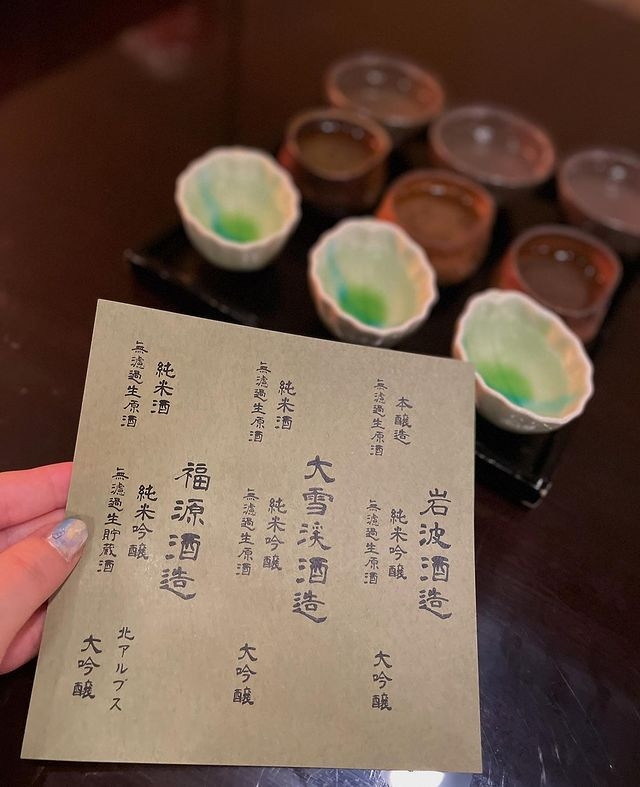 岩波酒造
本醸造
無濾過生原酒
純米吟醸
無濾過生原酒
大吟醸
大雪渓酒造
純米酒
無濾過生原酒
純米吟醸
無濾過生原酒
大吟醸
福源酒造
純米酒
無濾過生原酒
純米吟醸
無濾過生貯蔵酒
北アルプス
大吟醸